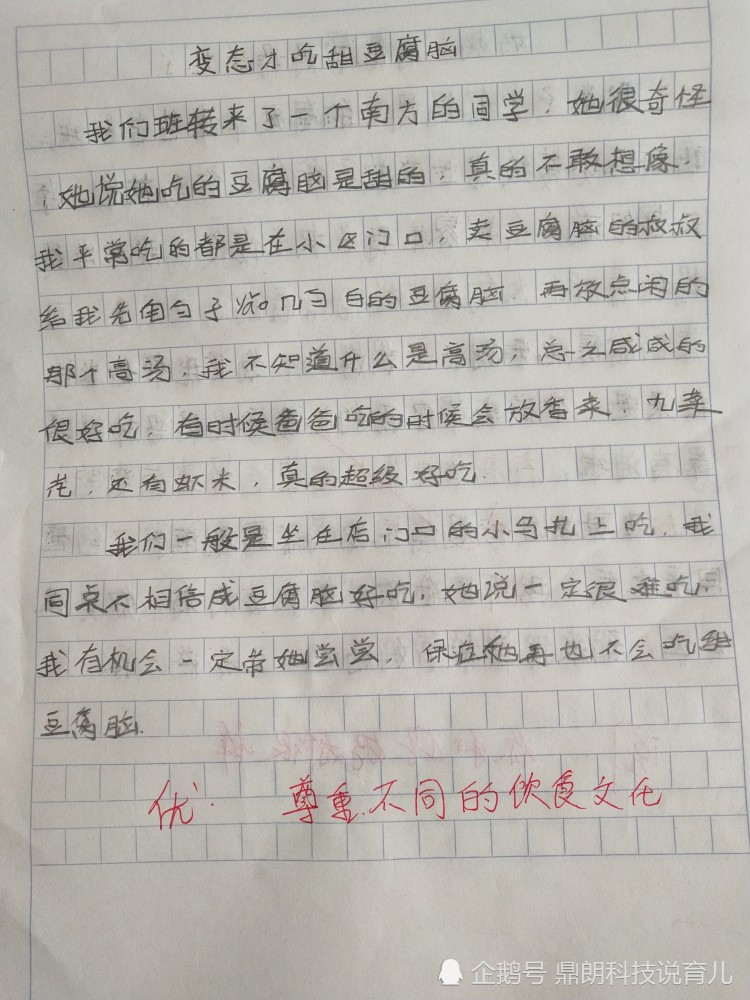 变态才吃甜豆腐脑
我们班转来了一个南方的同学，她很奇怪
，她说她吃的豆腐脑是甜的，真的不敢想像，
我平常吃的都是在小区门口，卖豆腐脑的叔叔
给我先用勺子 几勺白的豆腐脑，再放点闲的
那个高汤，我不知道什么是高汤，总之咸咸的
很好吃，有时候爸爸吃的时候会放香菜，九菜
花，还有虾米，真的超级好吃.
我们一般是坐在店门口的小马扎上吃，我
同桌不相信咸豆腐脑好吃，她说一定很难吃，
我有机会一定带她尝尝，保证她再也不会吃甜
豆腐脑.
优. 尊重不同的饮食文化
企鹅号 鼎朗科技说育儿